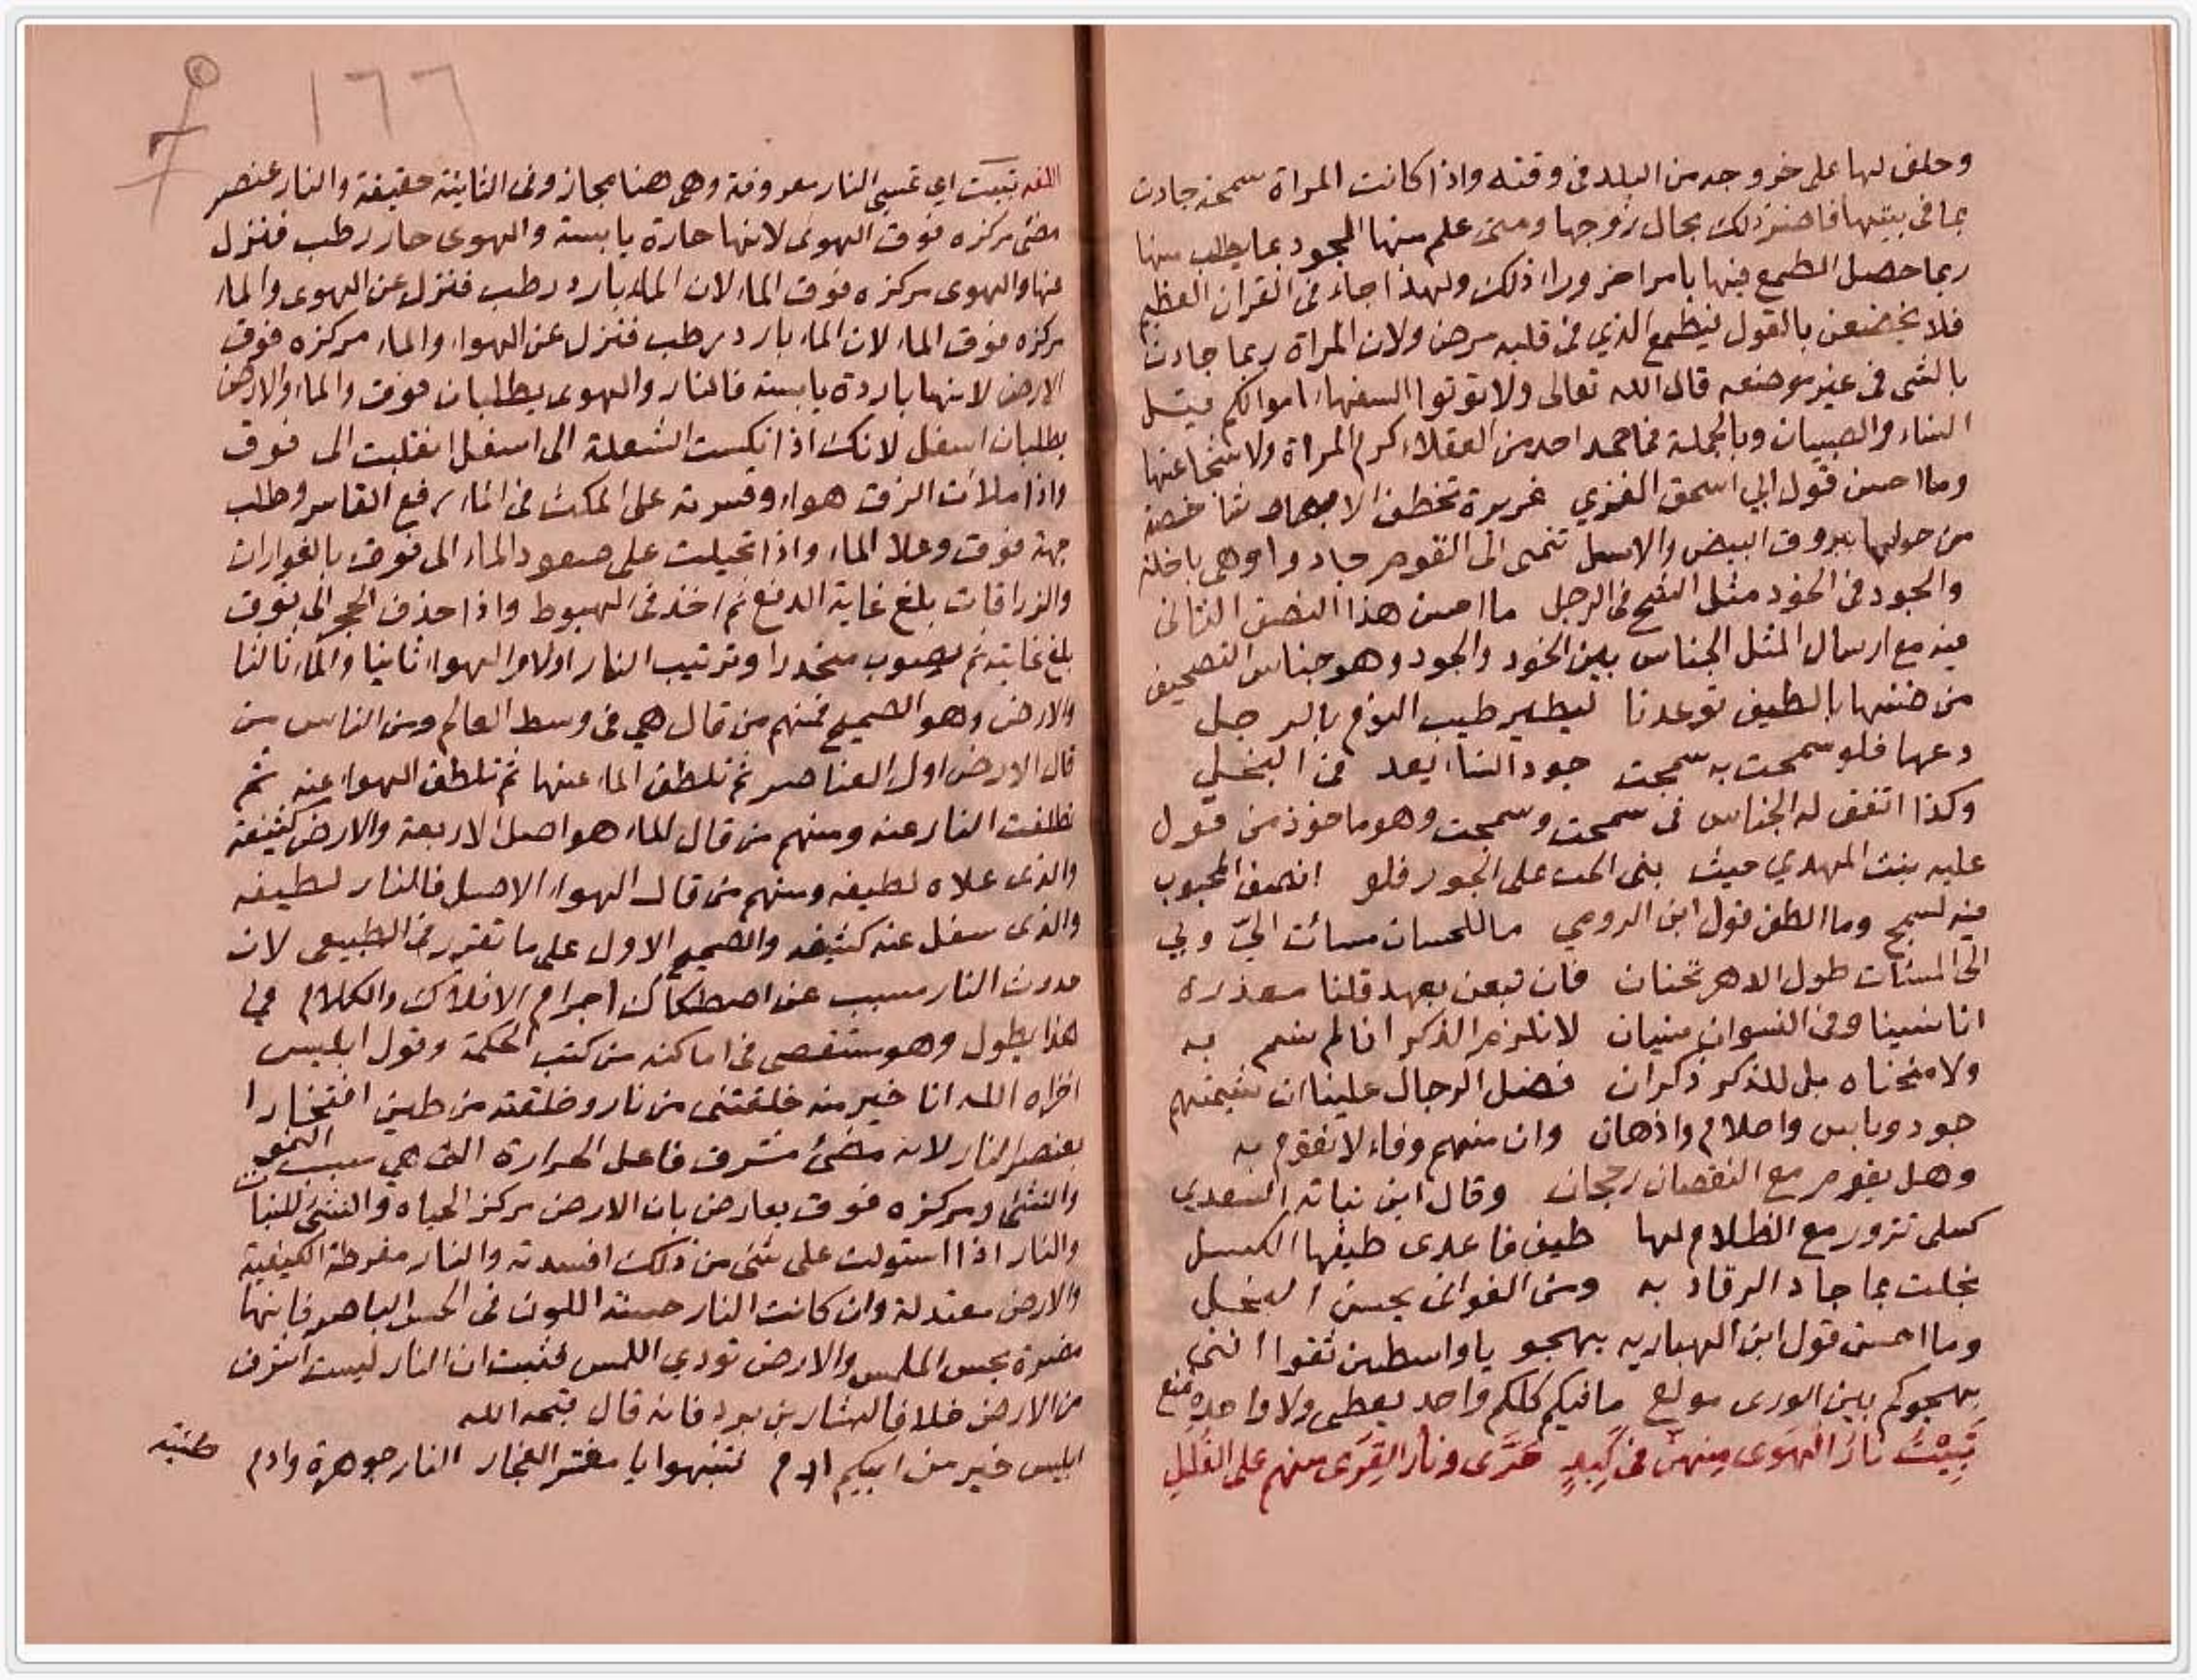 وحلف لها على خروجه من البلد فى وقته واذا كانت المراة سمحة جادت
بما فى بيتها فاضر ذلك بحال زوجها ومتى علم منها الجود بما يطلب منها
ربما حصل الطمع فيها بامر اخر وراء ذلك ولهذا جاء فى القران العظيم
فلا تخضعن بالقول فيطمع الذي فى قلبه مرض ولان المراة ربما جادت
بالشى فى غير موضعه قال الله تعالى ولا توتوا السفهاء اموالكم قيل
النساء والصبيان وبالجملة فما حمد احد من العقلاء كرم المراة ولا شجاعتها
وما احسن قول ابي اسحق الغزي غريرة تخطف الابصار شاخصة
من حولها بروق البيض والاسل تنمى الى القوم جادوا وهى باخلة
والجود فى الخود مثل الشح فى الرجل ما احسن هذا النصف الثانى
فيه مع ارسال المثل الجناس بين الخود والجود وهو جناس التصحيف
من ضنها بالطيف توعدنا ليطير طيب النوم بالرجل
دعها فلو سمحت به سمجت جود النساء يعد فى البخل
وكذا اتفق له الجناس فى سمحت وسمجت وهو ماخوذ من قول
عليه بنت المهدي حيث بنى الحب على الجور فلو انصف المحبوب
فيه لسمج وما الطف قول ابن الرومي ما للحسان مسآت الىّ ولي
الى المسئات طول الدهر تحنان فان تبعن بعهد قلنا معذرة
انا نسينا وفى النسوان نسيان لا نلزم الذكر انا لم نسم به
ولا منحناه بل للذكر ذكران فضل الرجال علينا ان شيمتهم
جود وباس واحلام واذهان وان منهم وفاء لا نقوم به
وهل يقوم مع النقصان رجحان وقال ابن نباته السعدي
كسلى تزور مع الظلام لها طيف فاعدى طيفها الكسل
بخلت بما جاد الرقاد به ومن الغوانى يحسن البخل
وما احسن قول ابن الهباريه يهجو يا واسطين ثقوا اننى
بهجوكم بين الورى مولع ما فيكم كلكم واحد يعطى ولا واحدة تمنع
تَبِيْتُ نارُ الهَوى مِنهنّ فى كَبِدٍ حَرَّى ونارُ القِرَى منهم على القُلَلِ
١٦٦
اللغه تبيت اى تمسى النار معروفة وهى هنا مجاز وفى الثانية حقيقة والنار عنصر
مضى مركزه فوق الهوى لانها حارة يابسة والهوى حار رطب فنزل
عنها والهوى مركزه فوق الماء لان الماء بارد رطب فنزل عن الهوى والماء
مركزه فوق الماء لان الماء بارد رطب فنزل عن الهواء والماء مركزه فوق
الارض لانها باردة يابسة فالنار والهوى يطلبان فوق والماء والارض
يطلبان اسفل لانك اذا نكست الشعلة الى اسفل انقلبت الى فوق
واذا ملات الزق هواء وقسرته على المكث فى الماء رفع القاسر وطلب
جهة فوق وعلا الماء واذا تحيلت على صعود الماء الى فوق بالفوارات
والزراقات بلغ غاية الدفع ثم اخذ فى الهبوط واذا حذف الحجر الى فوق
بلغ غايته ثم يصوب منحدرا وترتيب النار اولا والهواء ثانيا والماء ثالثا
والارض وهو الصحيح فمنهم من قال هي فى وسط العالم ومن الناس من
قال الارض اول العناصر ثم تلطف الماء عنها ثم تلطف الهواء عنه ثم
تلطفت النار عنه ومنهم من قال الماء هو اصل الاربعة والارض كثيفة
والذى علاه لطيفه ومنهم من قال الهواء الاصل فالنار لطيفه
والذى سفل عنه كثيفه والصحيح الاول على ما تقرر فى الطبيعى لان
حدوث النار مسبب عن اصطكاك اجرام الافلاك والكلام في
هذا يطول وهو مستقصى فى اماكنه من كتب الحكمة وقول ابليس
اخزاه الله انا خير منه خلقتنى من نار وخلقته من طين افتخارا
بعنصر النار لانه مضئ مشرق فاعل الحرارة التى هي سبب النمو
والنشئ ومركزه فوق يعارض بان الارض مركز الحياه والنشئ للنبات
والنار اذا استولت على شئ من ذلك افسدته والنار مفرطة الكيفية
والارض معتدلة وان كانت النار حسنة اللون فى الحس الباصر فانها
مضرة بحس الملمس والارض تودي اللمس فثبت ان النار ليست اشرف
من الارض خلافا لبشار بن برد فانه قال قبحه الله
ابليس خير من ابيكم ادم فتنبهوا يا معشر الفجار النار جوهرة وادم
طينة